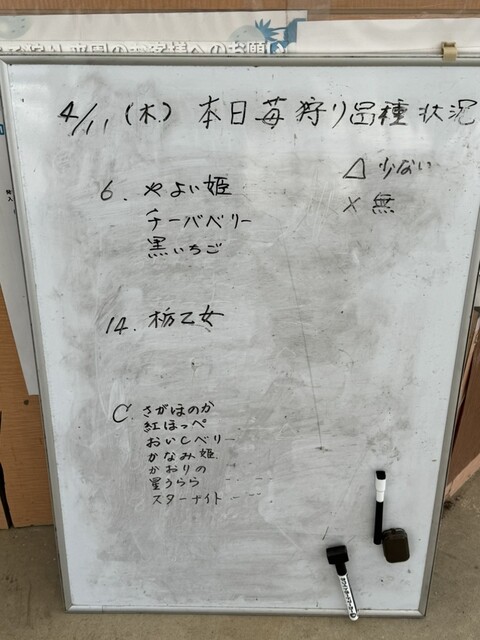 イチゴ狩り来園のお客様へのお願い
4/11 (木) 本日苺狩り品種状況
△ 少ない
× 無
6. やよい姫
チーバベリー
黒いちご
14. 栃乙女
C. さがほのか
紅ほっぺ
おいCベリー
かなみ姫
かおりの
星うらら
スターナイト